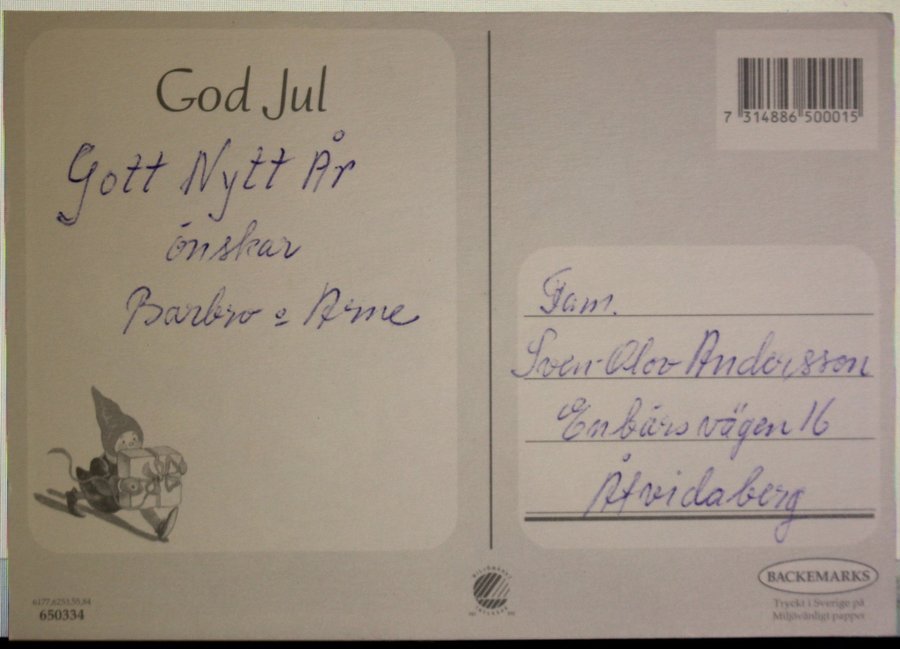 God Jul
Gott Nytt År
önskar
Barbro o Arne
7 314886 500015
Fam.
Sven-Olov Andersson
Enbärsvägen 16
Åtvidaberg
6177,6253,55,84
650334
BACKEMARKS
Tryckt i Sverige på
Miljövänligt papper